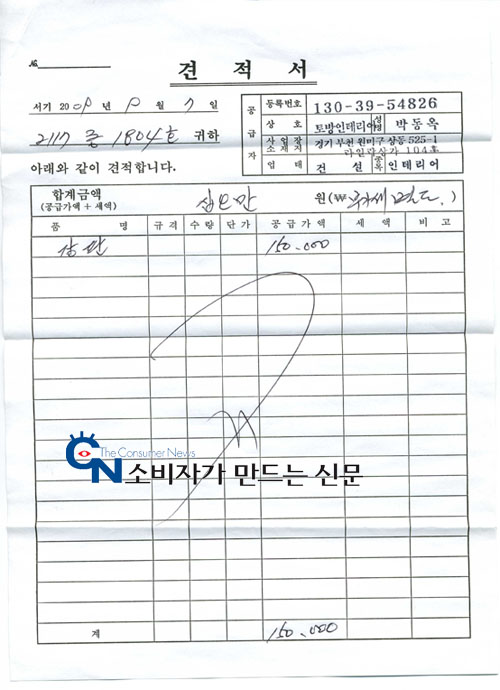 №
견 적 서
서기 2009 년 9 월 7 일
2117 동 1804호 귀하
아래와 같이 견적합니다.
공급자
등록번호 130-39-54826
상호 토방인테리어 성명 박동옥
사업장소재지 경기 부천 원미구 상동 525-1
라일락상가 104호
업태 건 설 종목 인테리어
합계금액 십오만 원(₩ 부가세 별도.)
(공급가액 + 세액)
품 명 규격 수량 단가 공급가액 세 액 비 고
상판 150.000
The Consumer News
CN 소비자가 만드는 신문
계 150.000